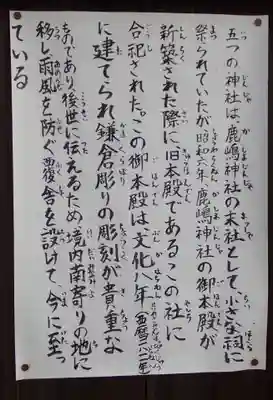 五つの神社は、鹿嶋神社の末社として、小さな祠に
祭られていたが昭和六年、鹿嶋神社の御本殿が
新築された際に旧本殿であるこの社に
合祀された。この御本殿は、文化八年(西暦一八一一年)
に建てられ鎌倉彫りの彫刻が貴重な
ものであり、後世に伝えるため境内南寄りの地に
移し、雨風を防ぐ覆舎を設けて、今に至っ
ている